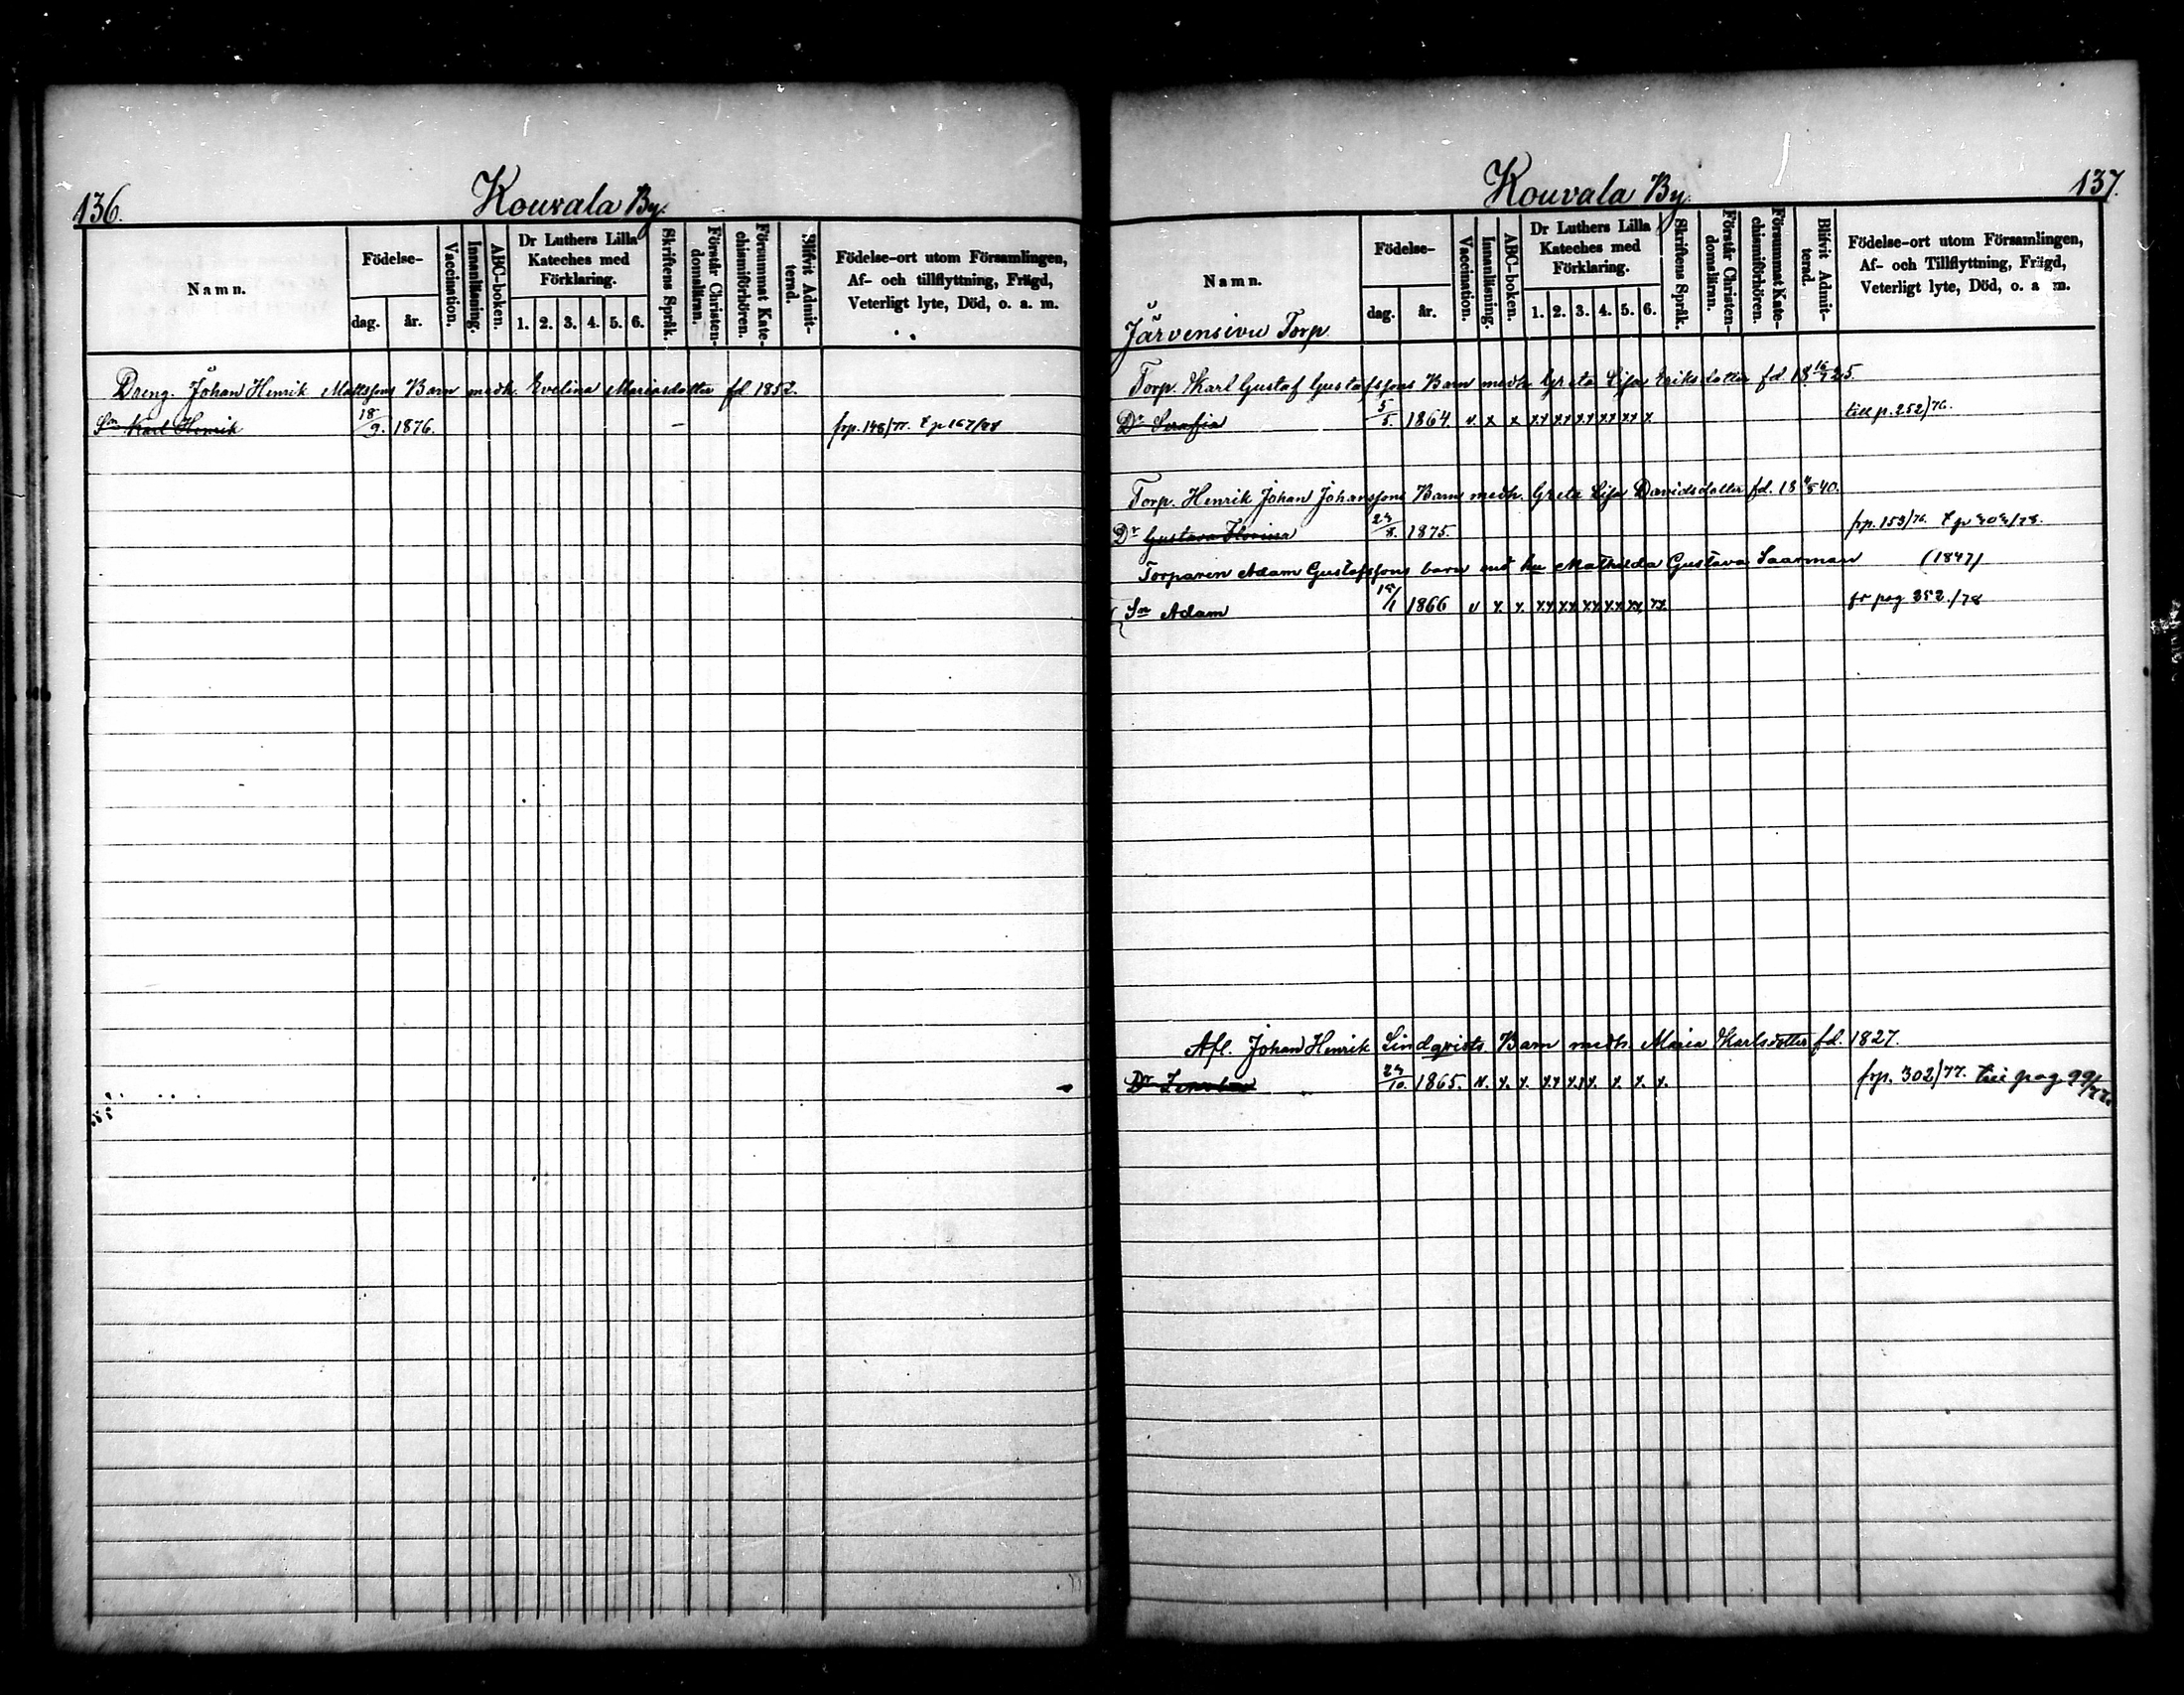 136.
Kouvala By.
Namn.
Födelse-
dag.
år.
Vaccination.
Innanläsning.
ABC-boken.
Dr Luthers Lilla
Kateches med
Förklaring.
1. 2. 3. 4. 5. 6.
Skriftens Språk.
Förstår Christen-
domsläran.
Försummat Kate-
chismiförhören.
Blifvit Admit-
terad.
Födelse-ort utom Församlingen,
Af- och tillflyttning, Frägd,
Veterligt lyte, Död, o. a. m.
Dreng. Johan Henrik Mattsfons Barn medh. Evelina Mariasdotter fd 1852.
Sn Karl Henrik 18/9. 1876. frp. 148/77. t p 167/78
137.
Kouvala By.
Namn.
Järvensivu Torp
Födelse-
dag.
år.
Vaccination.
Innanläsning.
ABC-boken.
Dr Luthers Lilla
Kateches med
Förklaring.
1. 2. 3. 4. 5. 6.
Skriftens Språk.
Förstår Christen-
domsläran.
Försummat Kate-
chismiförhören.
Blifvit Admit-
terad.
Födelse-ort utom Församlingen,
Af- och Tillflyttning, Frägd,
Veterligt lyte, Död, o. a m.
Torp. Karl Gustaf Gustafsfons Barn medh Greta Lisa Eriksdotter fd 1825.
Dr Serafia 5/5. 1864. v. x x xx xx xx xx xx x. till p. 252/76.
Torp. Henrik Johan Johansfons Barn medh. Greta Lisa Davidsdotter fd. 1840.
Dr Gustava 1875. frp. 153/76.
Torparen Adam Gustafsfons barn med hu Mathilda Gustava Saarman (1847)
Sn Adam 1866 v x. x. xx xx xx xx xx xx. fr pag 352./78
Afl. Johan Henrik Lindqvists Barn medh. Maria Karlsdotter fd. 1827.
Dr 1865. v. x. x. xx xx x. x. x. frp. 302/77. till pag 99/77.